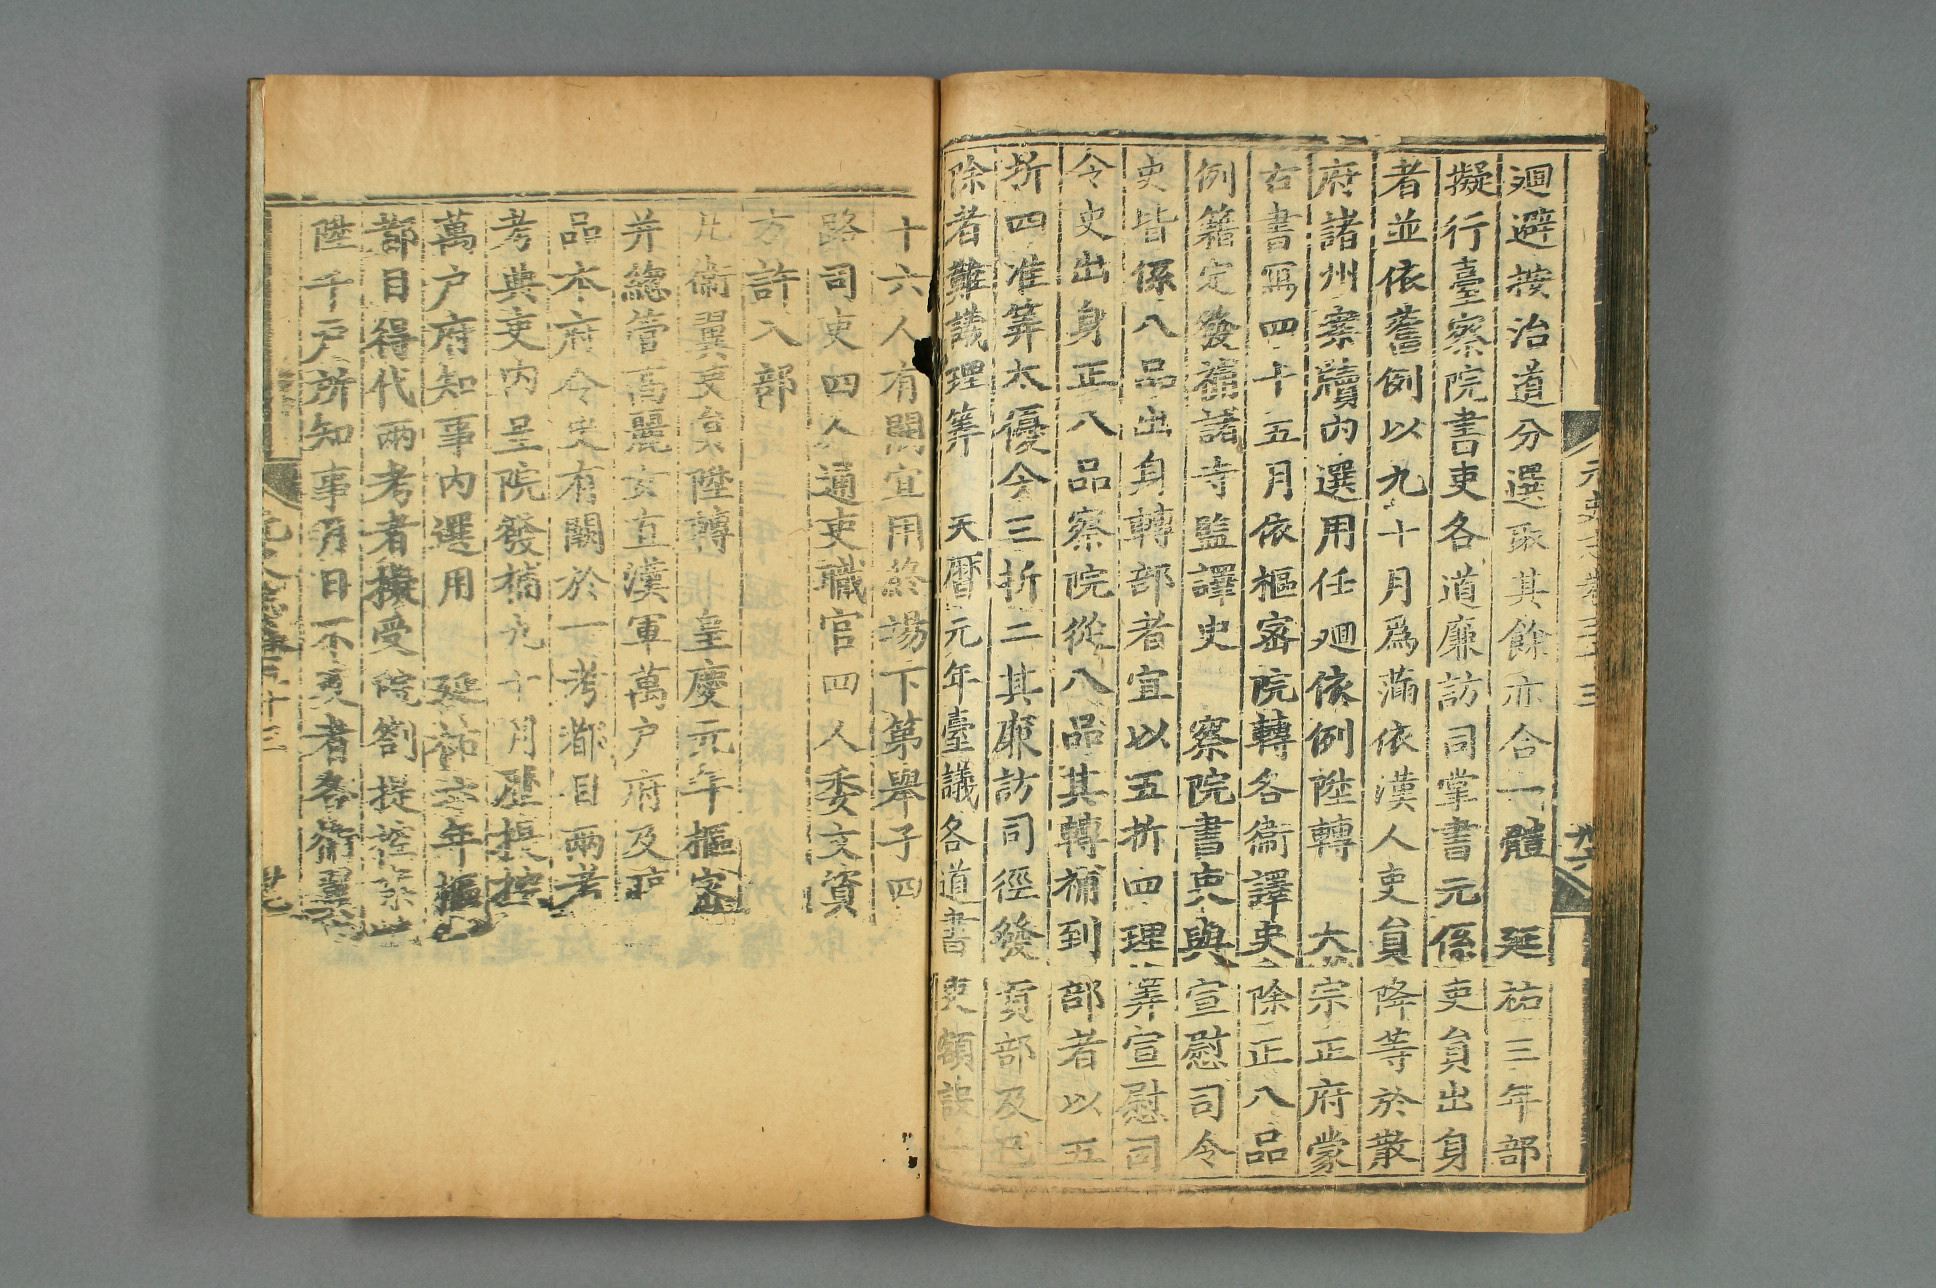 迴避按治道分選取其餘亦合一體 延祐三年部
擬行臺察院書吏各道廉訪司掌書元係吏員出身
者並依舊例以九十月爲滿依漢人吏員降等於散
府諸州案牘內選用任迴依例陞轉 大宗正府蒙
古書寫四十五月依樞密院轉各衞譯史除正八品
例籍定發補諸寺監譯史 察院書吏與宣慰司令
史皆係八品出身轉部者宜以五折四理筭宣慰司
令史出身正八品察院從八品其轉補到部者以五
折四准筭太優今三折二其廉訪司徑發貢部及已
除者難議理筭 天曆元年臺議各道書吏額設一
元史志卷三十三
廿六
十六人有闕宜用終場下第舉子四
路司吏四人通吏職官四人委文資
方許入部
凡衞翼吏員陞轉 皇慶元年樞密
并總管高麗女直漢軍萬戶府及
品本府令史有闕於一考都目兩考
考典吏內呈院發補九十月歷提控
萬戶府知事內選用 延祐六年樞
都目得代兩考者擬受院劄提控案
陞千戶所知事月日不及者各衞翼